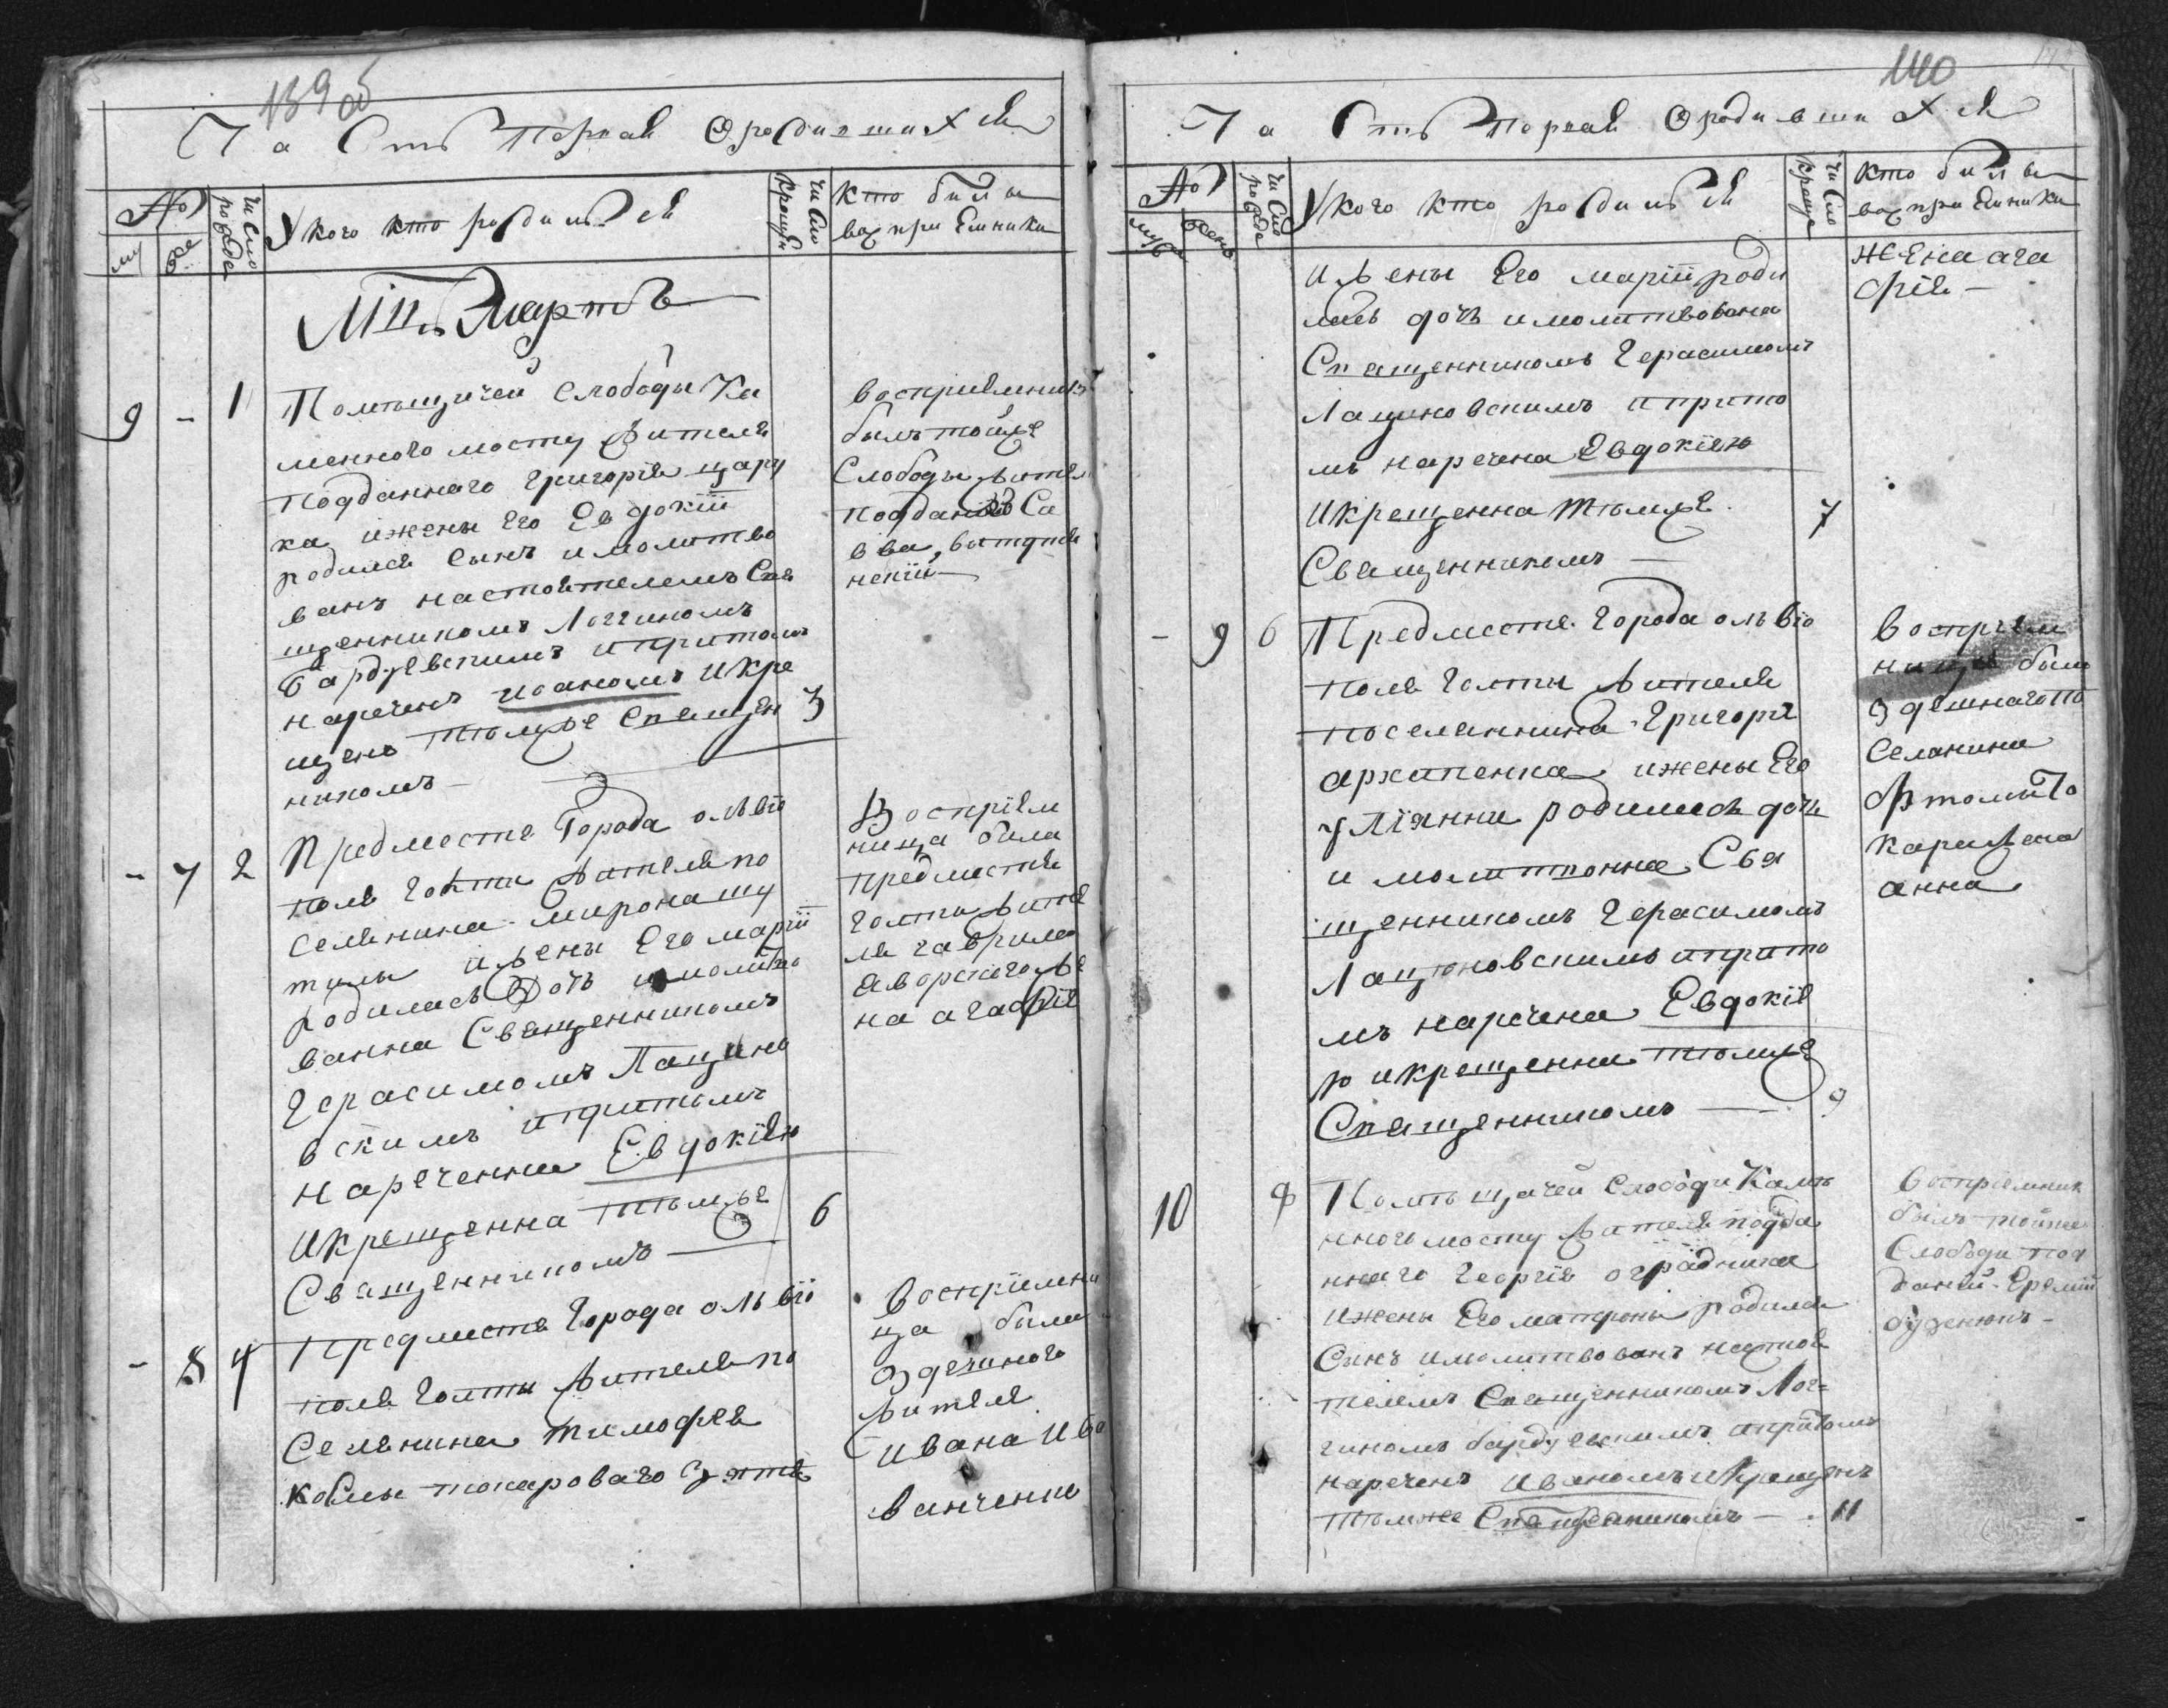 139 об
Часть первая О родившихся
№
му
же
число рожде
У кого кто родился
число креще
кто были восприемники
Мць Мартъ
9 - 1
Помѣщичей слободы Ка
менного мосту жителя
подданнаго Григорія
ка и жены Его Евдокіи
родился сынъ и молитво
ванъ настоятелемъ Свя
щенникомъ Логгиномъ
и притомъ
нареченъ иоаномъ и кре
щенъ тѣмже Священ 3
никомъ
восприемникъ
былъ тойже
Слободы жител
подданой Са
ва
- 7 2
Предместя Города ольвіо
поля Голты жителя по
селянина Мирона шу
тилы и жены Его маріи
родилась дочъ и молитво
ванна Священникомъ
Герасимомъ Лащино
вскимъ и притомъ
нареченна Евдокіею
и крещенна тѣмже
Священникомъ 6
Восприем
ница била
предместя
Голты жите
ля гаврила
яворского же
на агафія
- 8 4
Предместя Города ольвіо
поля Голты жителя по
селянина тимофея
кобилы токароваго зятя
восприемни
ца была
здешного
жителя
ивана ива
ванченка
140
Часть первая О родившихся
№
муж
женъ
число рожде
У кого кто родился
число креще
кто били восприемники
и жены Его маріи роди
лась дочъ и молитвована
Священникомъ Герасимомъ
Лащиновскимъ и прито
мъ наречена Евдокіею
и крещенна тѣмже 7
Священникомъ
жена ага
фія
- 9 6
Предместя Города ольвіо
поля Голты жителя
поселянина Григорія
архипенка и жены Его
улянни родилась дочъ
и молитвонна Свя
щенникомъ Герасимомъ
Лащоновскимъ и прито
мъ наречена Евдокіе
ю и крещенна тѣмже
Священникомъ 9
восприем
ница была
здешнаго по
селянина
жена
анна
10
Помѣщичей слободи Каме
нного мосту жителя подда
ннаго Георгія оградника
и жены Его матроны родился
Синъ и молитвованъ настоя
телемъ Священникомъ Лог=
гиномъ и притомъ
нареченъ иваномъ и Крещенъ
тѣмже Священникомъ 11
восприемник
былъ тойже
Слободи под
даний Еремій